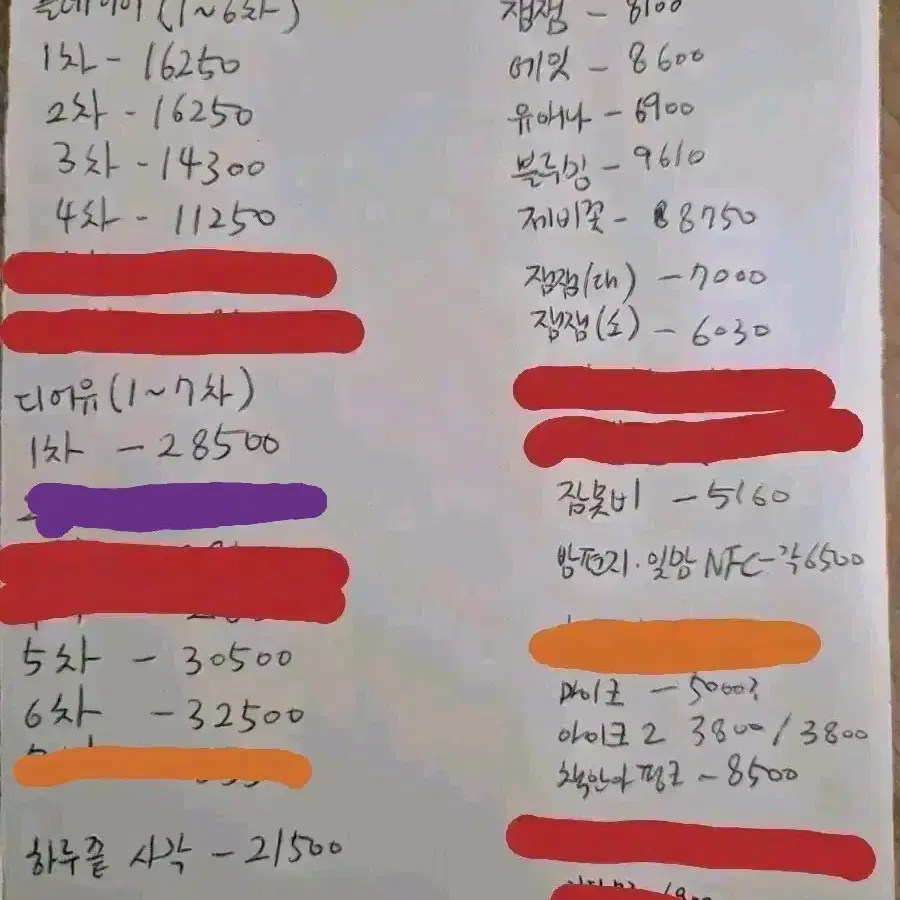 (1~6차)
1차 - 16250
2차 - 16250
3차 - 14300
4차 - 11250
디어유 (1~7차)
1차 - 28500
5차 - 30500
6차 - 32500
하루쯤 사각 - 21500
잼잼 - 8100
에잇 - 8600
유애나 - 6900
블루밍 - 9610
제비꽃 - 8750
잼잼(대) - 7000
잼잼(소) - 6030
잠못비 - 5160
밤편지·일망 NFC - 각6500
마이크 - 5000?
아이크 2 3800 / 3800
책안아 핑크 - 8500